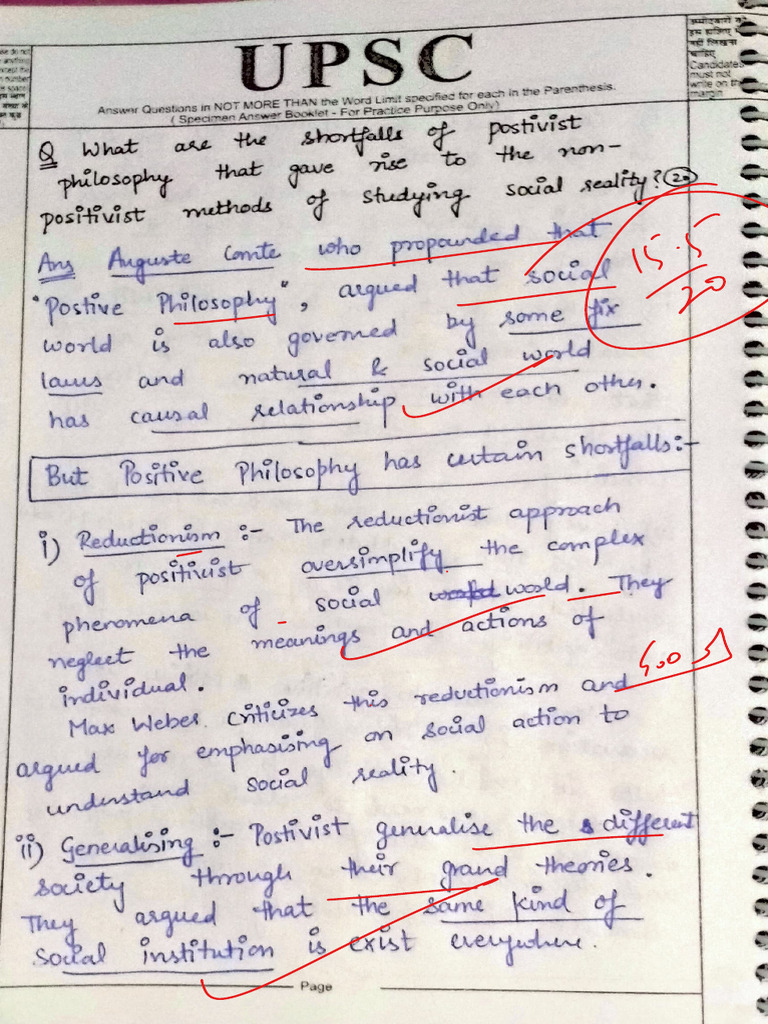 UPSC
Answer Questions in NOT MORE THAN the Word Limit specified for each in the Parenthesis.
( Specimen Answer Booklet - For Practice Purpose Only)
उम्मीदवारों को
इस हाशिए
नहीं लिखना
चाहिए
Candidates
must not
write on the
margin
Q What are the shortfalls of postivist
philosophy that gave rise to the non-
positivist methods of studying social reality? 20
Ans Auguste Comte who propounded that
"Postive Philosophy", argued that social
world is also governed by some fix
laws and natural & social world
has causal relationship with each other.
15.5/20
But Positive Philosophy has certain shortfalls:-
i) Reductionism :- The reductionist approach
of positivist oversimplify the complex
pheromena of social world. They
neglect the meanings and actions of
individual.
Good
Max Weber criticizes this reductionism and
argued for emphasising on social action to
understand social reality.
ii) Generalising :- Postivist generalise the different
society through their grand theories.
They argued that the same kind of
social institution is exist everywhere.
Page